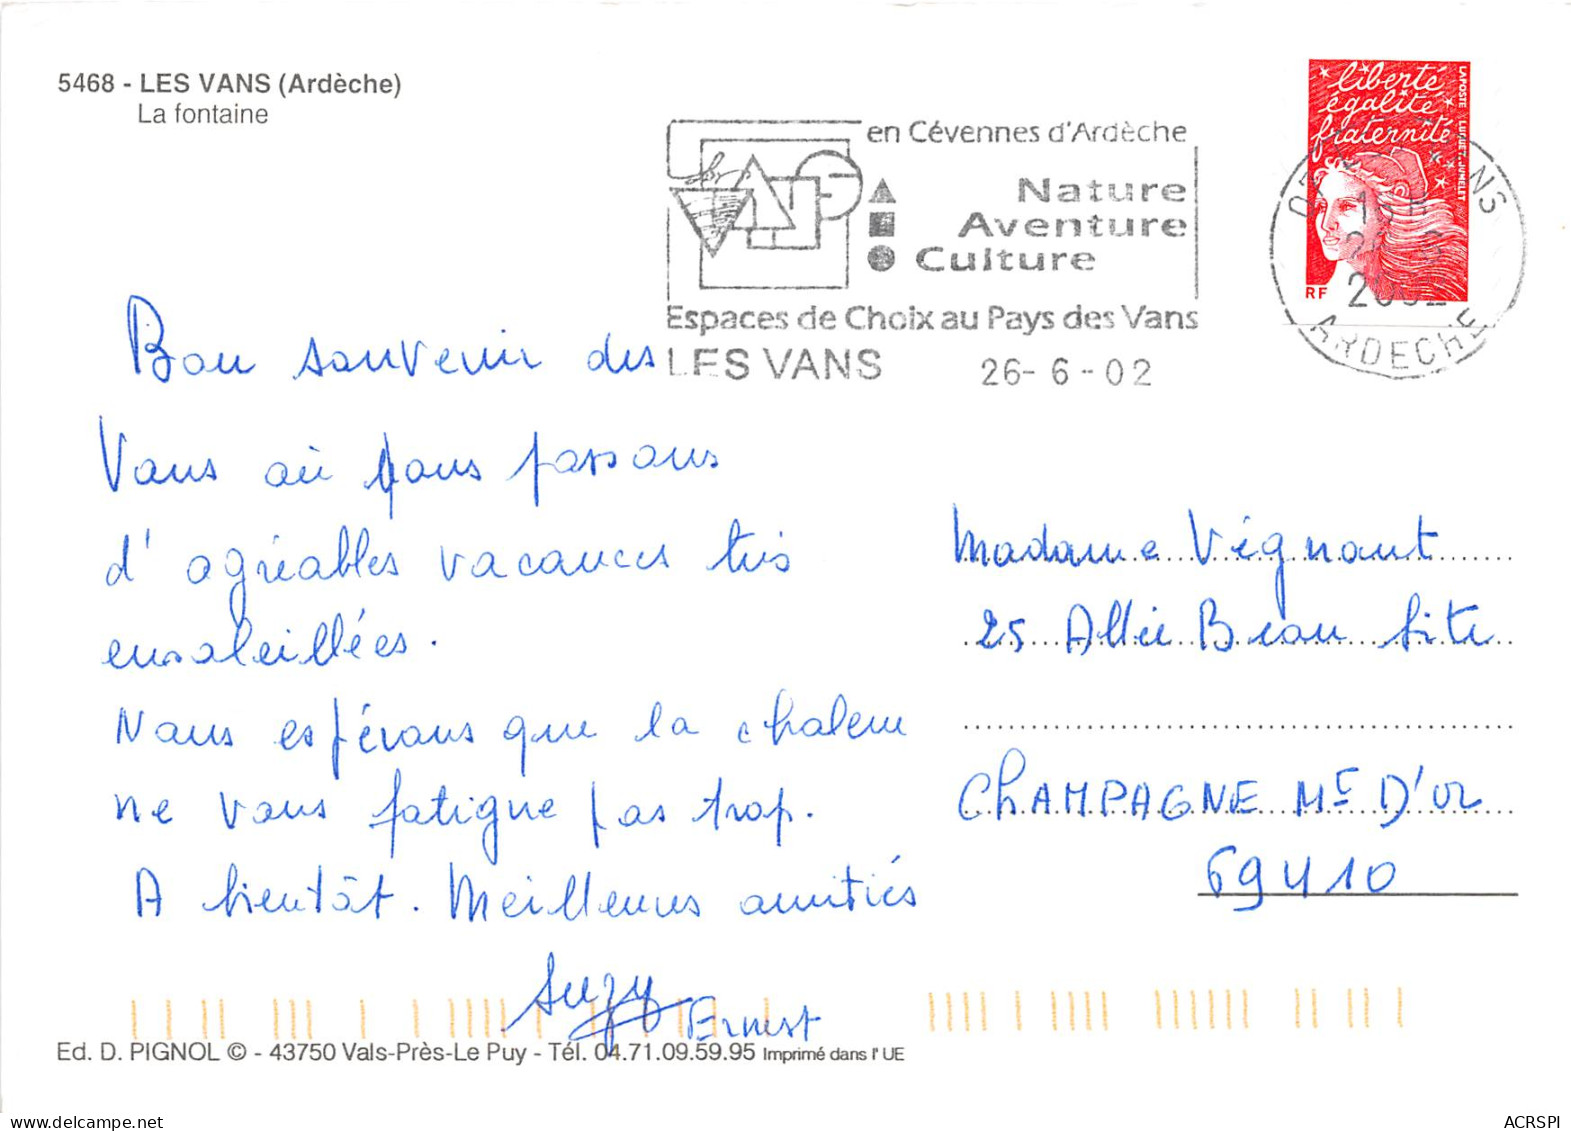 5468 - LES VANS (Ardèche)
La fontaine
liberté
égalité
fraternité
LAPOSTE LUQUET. JUMELET
RF
en Cévennes d'Ardèche
Nature
Aventure
Culture
Espaces de Choix au Pays des Vans
LES VANS 26- 6 - 02
2002
ARDECHE
Bon souvenir des
Vans où nous passons
d'agréables vacances très
ensoleillées.
Nous espérons que la chaleur
ne vous fatigue pas trop.
A bientôt. Meilleures amitiés
Suzy
Ernest
Madame Vignaut
25 Allée Beau Site
CHAMPAGNE Mt D'OR
69410
Ed. D. PIGNOL © - 43750 Vals-Près-Le Puy - Tél. 04.71.09.59.95 Imprimé dans l' UE
ACRSPI